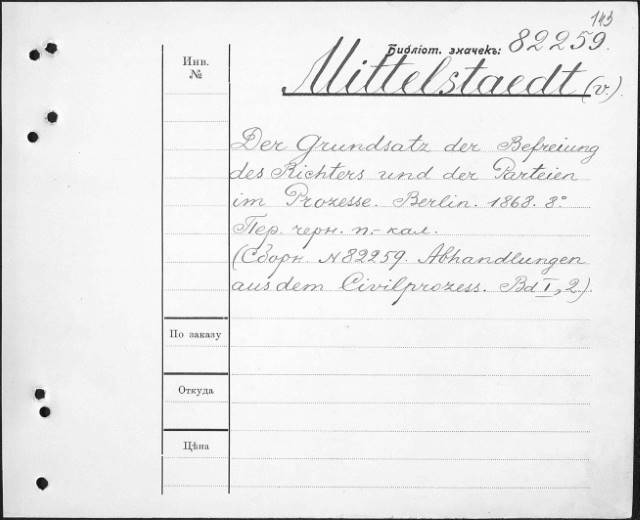 143
Библіот. значекъ: 82259.
Инв.
№
Mittelstaedt (v.)
Der Grundsatz der Befreiung
des Richters und der Parteien
im Prozesse. Berlin. 1868. 8°
Пер. черн. п.-кал.
(Сборн. N 82259. Abhandlungen
aus dem Civilprozess. Bd I, 2).
По заказу
Откуда
Цѣна